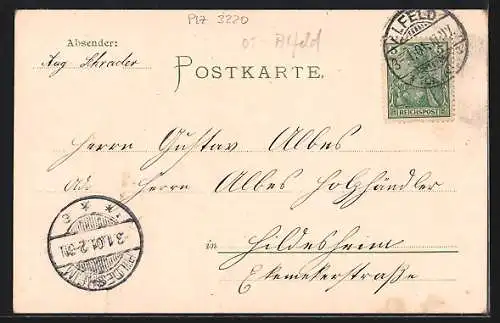 PLZ 3220
07- Alfeld
Absender:
Aug Schrader
POSTKARTE.
ALFELD
REICHSPOST
Herrn Gustav Albes
Adr. Herrn Albes Holzhändler
in Hildesheim
Eckemekerstraße
HILDESHEIM
3.1.01.2-3N